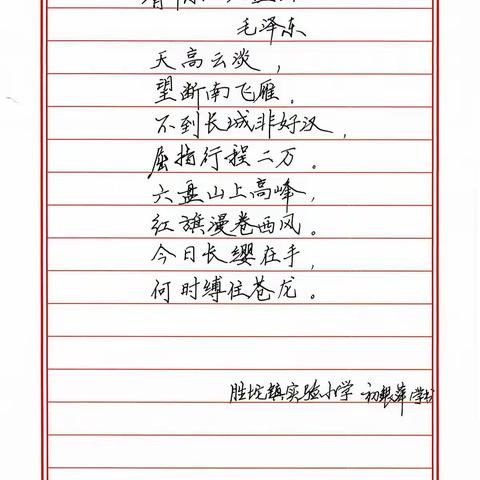 毛泽东
天高云淡，
望断南飞雁。
不到长城非好汉，
屈指行程二万。
六盘山上高峰，
红旗漫卷西风。
今日长缨在手，
何时缚住苍龙。
胜坨镇实验小学 初银萍 学书